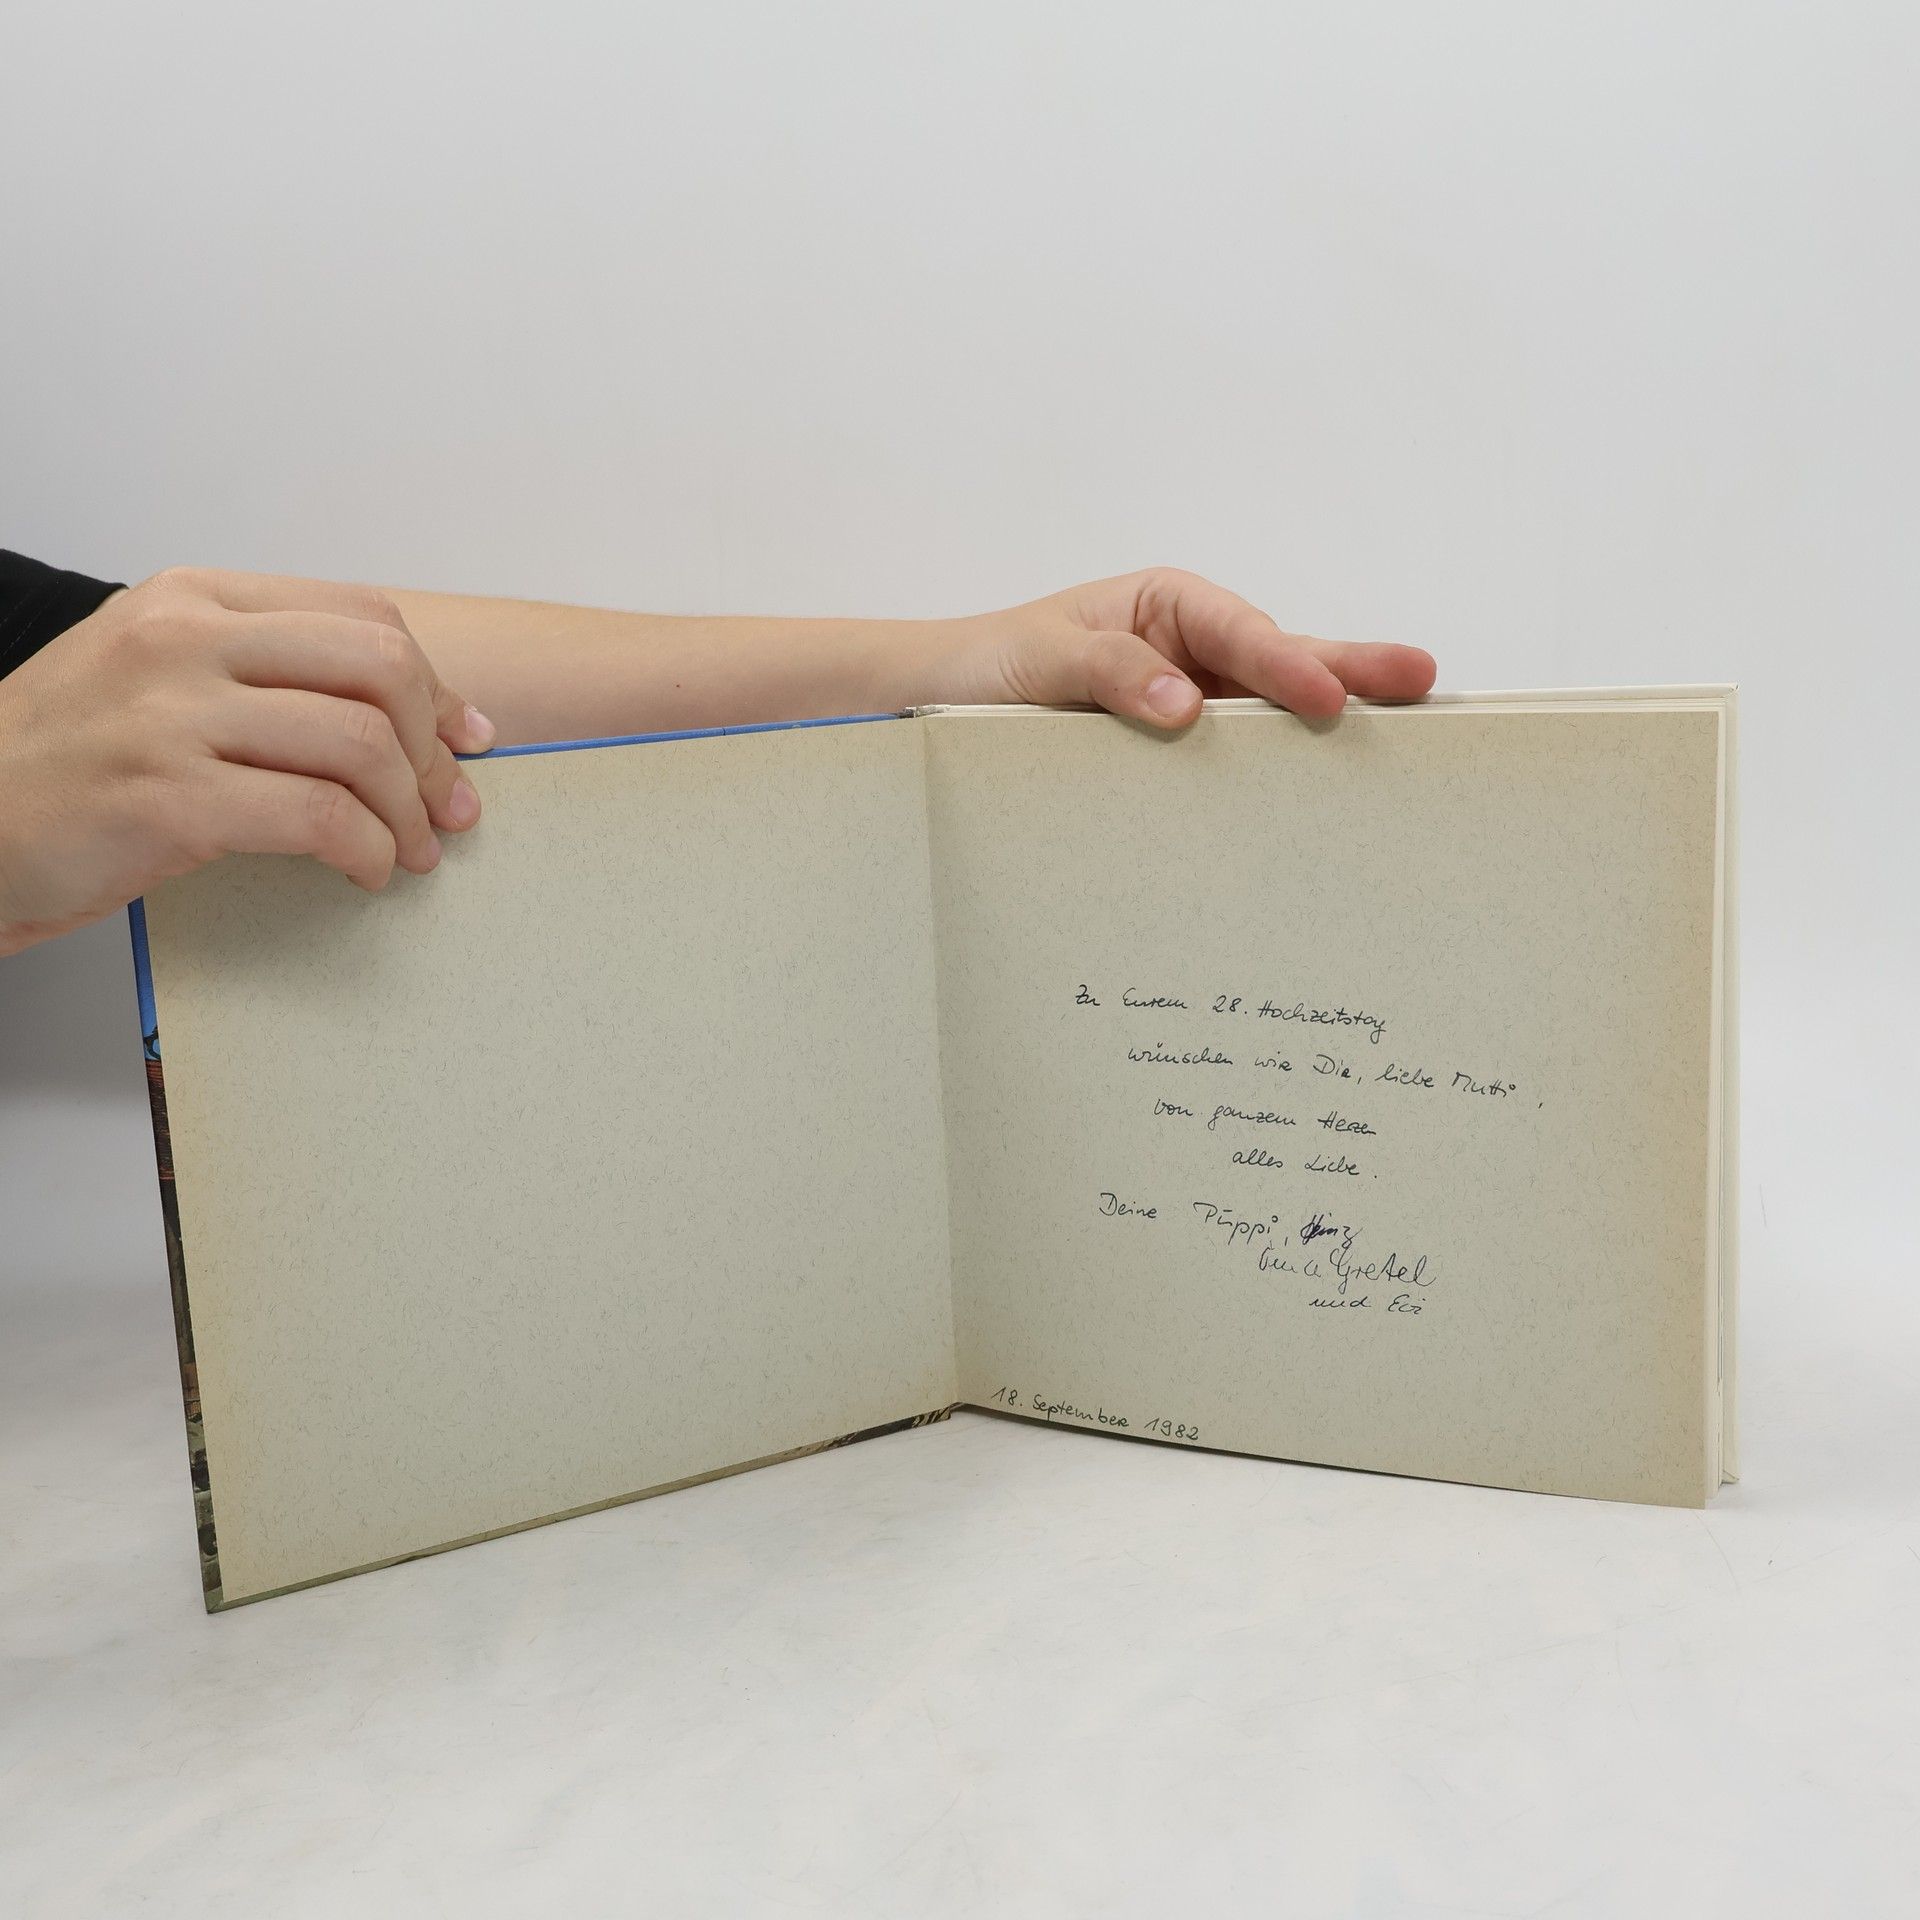 Zu Eurem 28. Hochzeitstag
wünschen wir Dir, liebe Mutti,
von ganzem Herzen
alles Liebe.
Deine Püppi, Heinz
Gretel
und Evi
18. September 1982